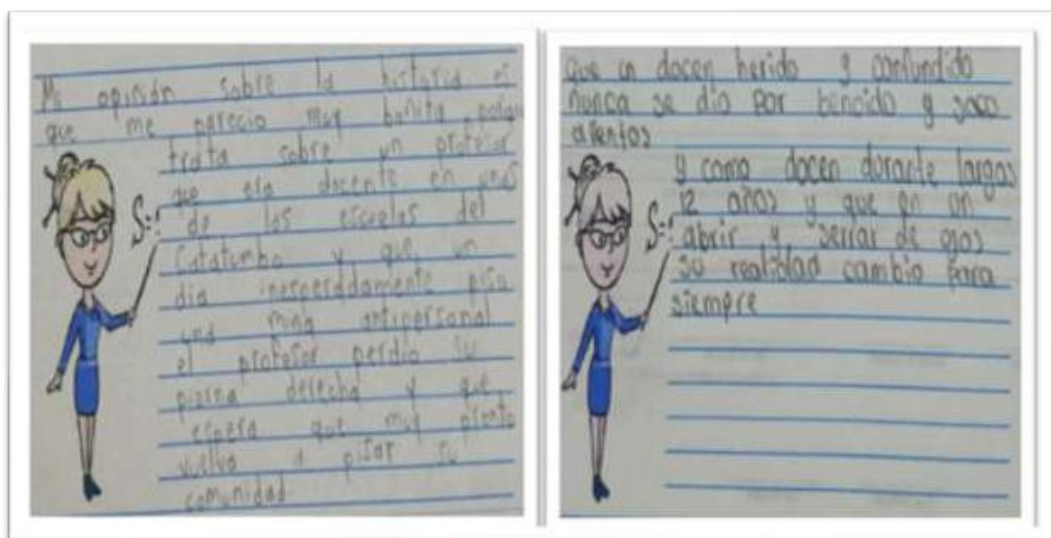 Mi opinión sobre la historia es
que me parecio muy bonita porque
trata sobre un profesor
que era docente en unas
de las escuelas del
Catatumbo y que un
dia inesperadamente piso
una mina antipersonal
el profesor perdio su
pierna derecha y que
espera que muy pronto
vuelva a pisar su
comunidad.
que un docen herido y confundido
nunca se dio por bencido y saco
alientos
y como docen durante largos
12 años y que en un
abrir y serrar de ojos
su realidad cambio para
siempre